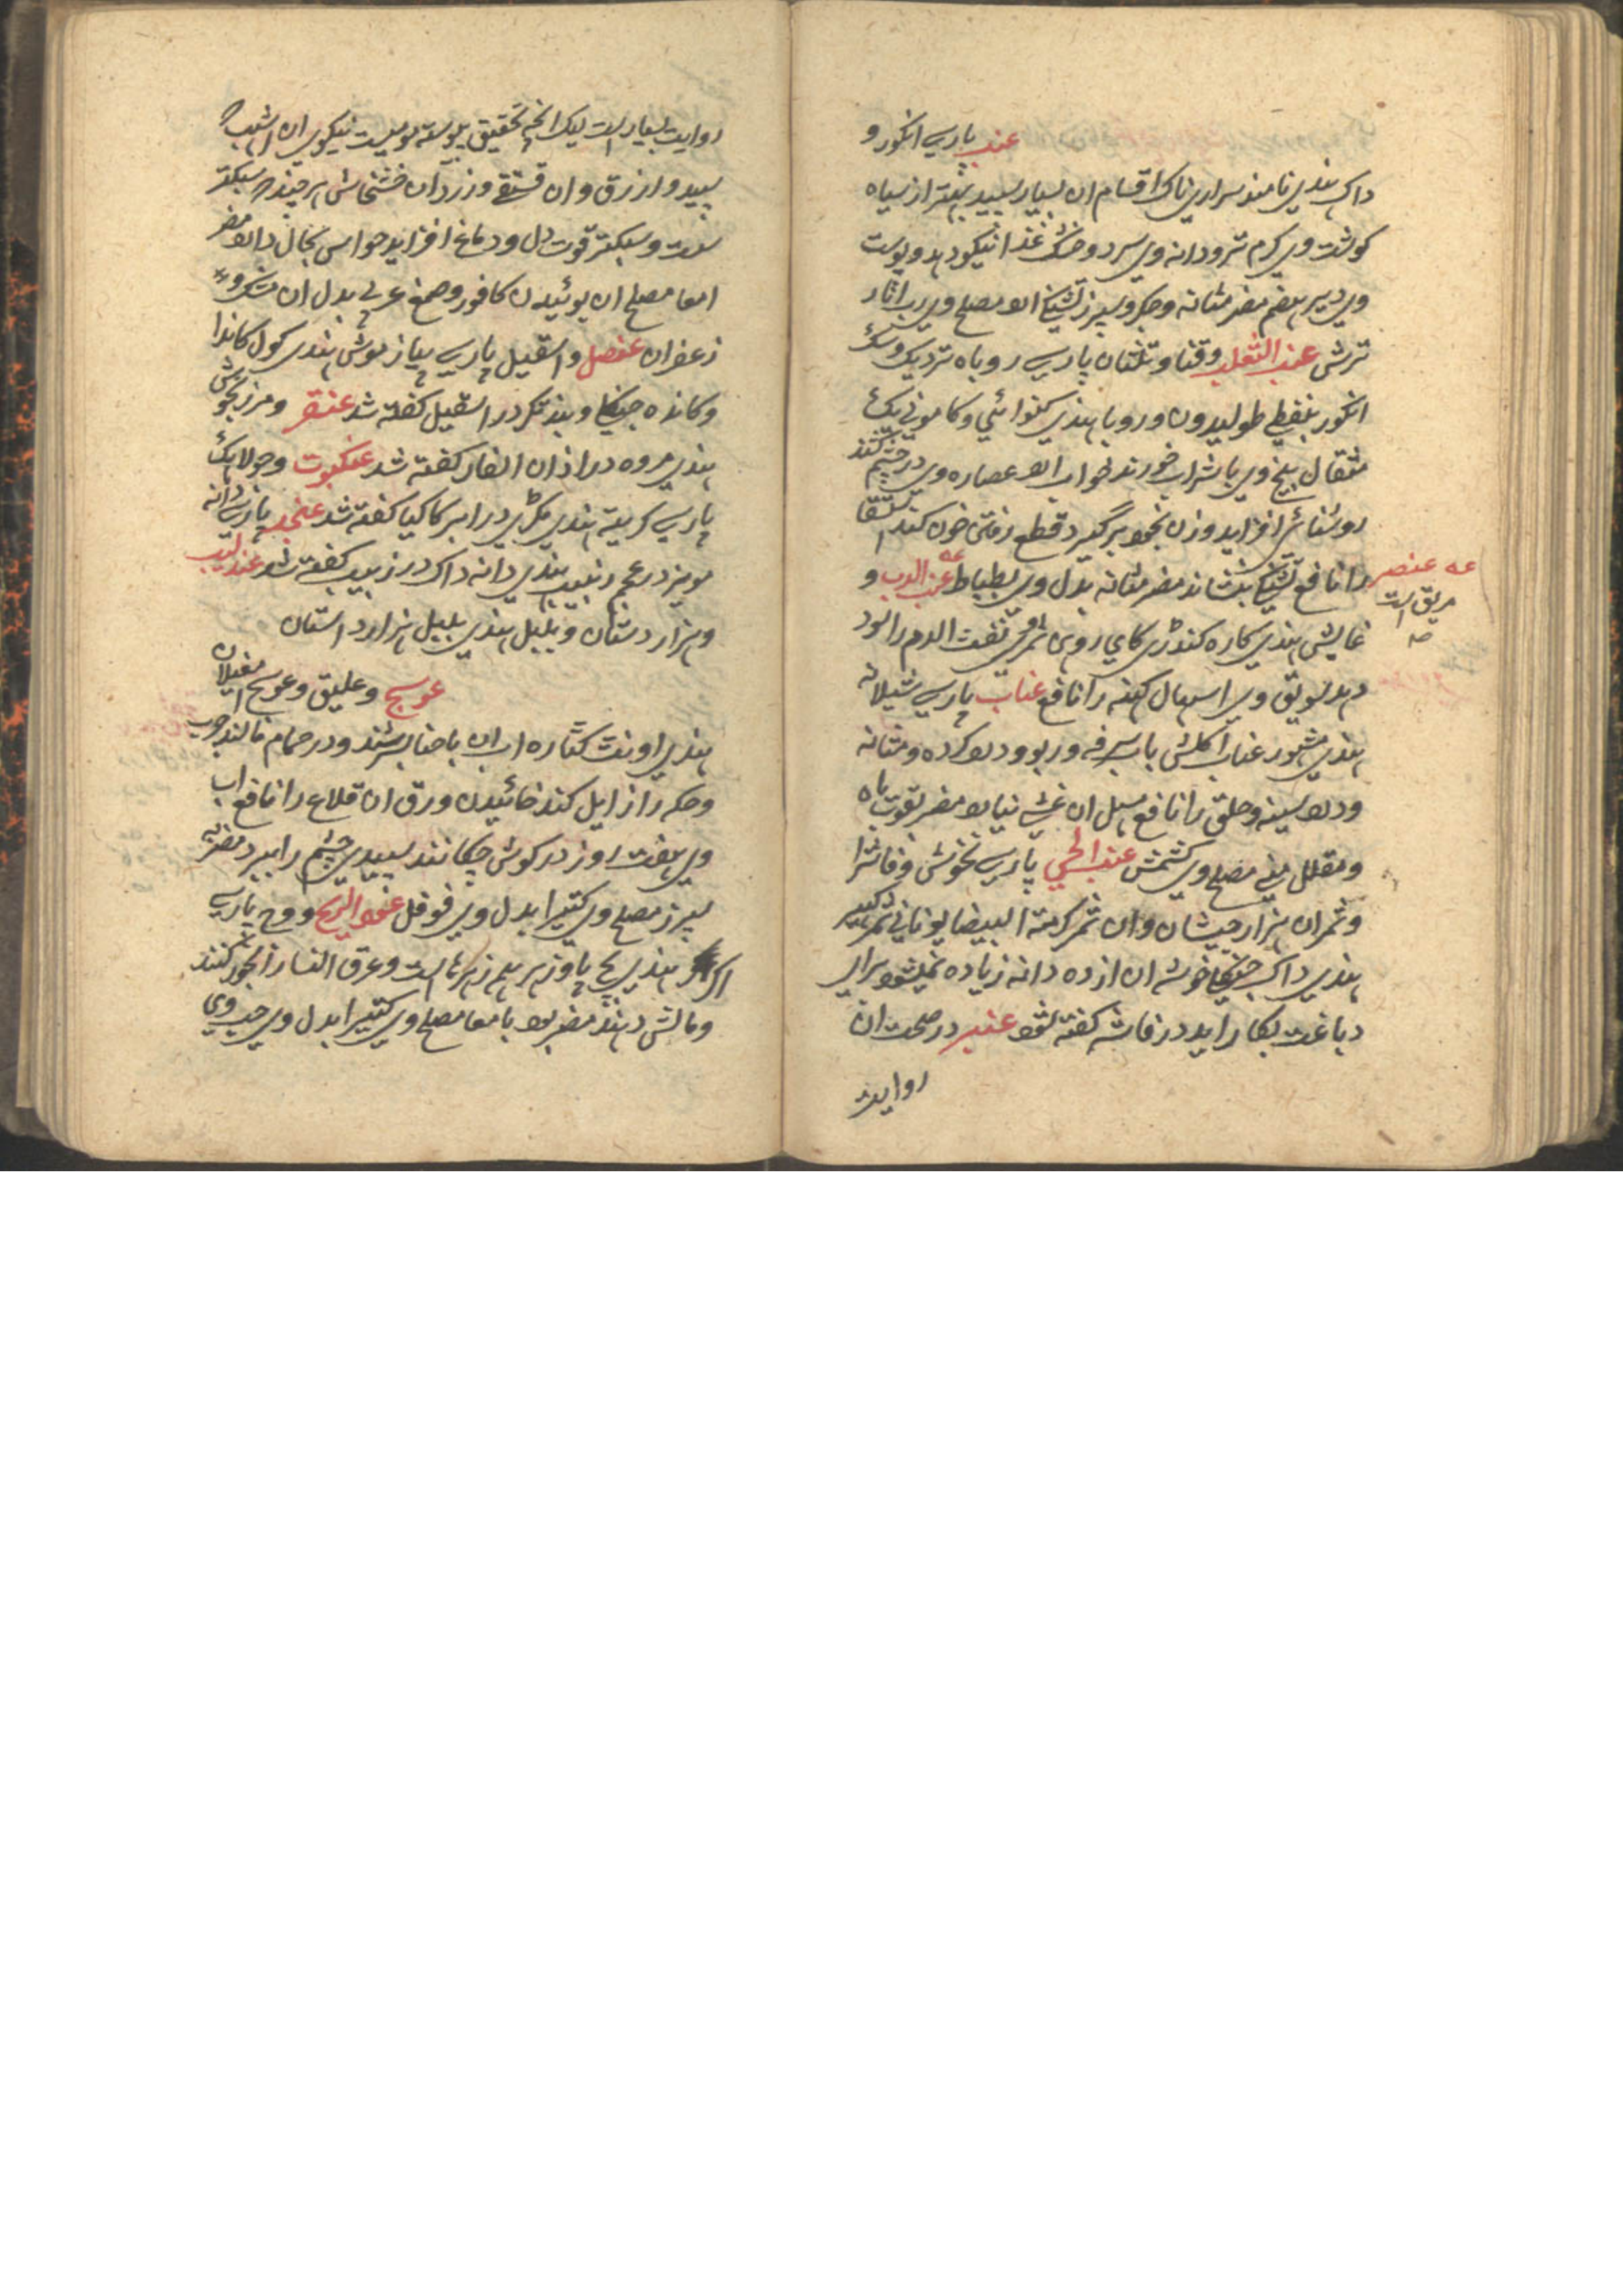 عنب پارسی انکور و
داک هندی نامند سراری تاک اقسام ان بسیار سپید بهتر از سیاه
کوشت وی کرم تر و دانه وی سرد و خشک غذا نیکو دهد و پوست
وی دیر هضم مضر مثانه و جکر و سپرز تشنکی ارد مصلح وی رب انار
ترش عنب الثعلب و قنا و تلثان پارسی روباه تردیک و سک
انکور بنفطی طولیدون و روبا هندی کنوائی و کامونی یک
مثقال بیخ وی با شراب خورند خواب ارد عصاره وی در چشم کنند
روشنائی افزاید وزن بخود برگیرد قطع رفتن خون کند استسقا
را نافع تشنکی بنشاند مضر مثانه بدل وی بطباط عنب الدب و
عه عنصر
بریق است
غایش هندی کاره کندری کای روی ثمر نفث الدم را سود
دهد سویق وی اسهال کهنه را نافع عناب پارسی شیلانه
هندی مشهور عناب اکلش با سرفه و ربو و درد کرده و مثانه
و درد سینه و حلق را نافع مسهل ان غشی نیارد مضر بقوت باه
و مقلل منی مصلح وی کشمش عنب الحی پارسی نخوش و فاشرا
و ثمر ان هزار جیشان و ان ثمر کرمة البیضا یونانی ثمر
هندی داک جنکلی خوشه ان از ده دانه زیاده نمیشود برای
دباغت بکار اید در فاشه کفته شود عنبر در صحت ان
روایت
روایت بسیار است لیک انچه تحقیق پیوسته مومیست نیکوی ان اشهب
سپید و ازرق و ان فستقی و زرد ان خشخاشی هر چند سبکتر
ست و سبکتر قوت دل و دماغ افزاید حواس بحال دارد مضر
امعا مصلح ان بوئیدن کافور و صمغ عربی بدل ان مشک و
زعفران عنصل و اسقیل پارسی پیاز موش هندی کول کاندا
و کانده جنکلی و بندکر در اسقیل کفته شد عنقر و مرزنجوش
هندی مروه در اذان الفار کفته شد عنکبوت و جولاهک
پارسی کربیه هندی مکری در ابر کاکیا کفته شد عنجد پارسی دانه
مویز در عجم زبیب هندی دانه داک در زبیب کفته شد عندلیب
و هزار دستان و بلبل هندی بلبل هزار داستان
عوسج و علیق و عوسج مغیلان
هندی اونت کتاره اب ان با حنا بسرشند و در حمام مالند جرب
و حکه را زایل کند خائیدن ورق ان قلاع را نافع اب
وی هفت روز در کوش چکانند سپیدی چشم را ببرد مضر
سپرز مصلح وی کتیرا بدل وی فوفل عود الریح و وج پارسی
اکر هندی بچ پاوزهر همه زهرهاست و عرق النسا را بخور کنند
و مالش دهند مضر بود بامعا مصلح وی کتیرا بدل وی حب وی